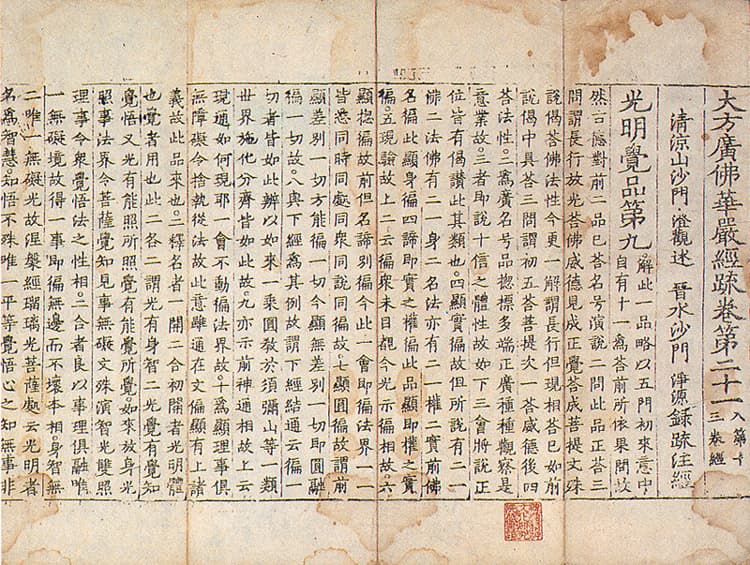 大方廣佛華嚴經疏卷第二十一 入第十三卷經
清涼山沙門 澄觀述 晉水沙門 淨源錄疏注經
光明覺品第九 解此一品略以五門初來意中自有十一為荅前所依果問故
然言應對前二品已荅名号演說二問此品正荅三
問謂長行放光荅佛威德見成正覺荅成菩提文殊
說偈荅佛法性今更一解謂長行但現相荅已如前
說偈中具荅三問謂初五荅菩提次一荅威德後四
荅法性。二為廣名号品揔標多端正廣種種觀察是
意業故。三者即說十信之體性故如下三會將說正
位皆有偈讃此其類也。四顯實徧故但所說有二一
佛二法佛有二一身二名法亦有二一權二實前佛
名徧此顯身徧四諦即實之權徧此品顯即權之實
徧。五現驗故上二云徧衆未目覩今光示徧相故。六
顯揔徧故前但名諦別徧今此一會即徧法界一一
皆悉同時同處同衆同說同徧故。七顯圓徧故謂前
顯差別一切方能徧一切今顯無差別一切即圓融
徧一切故。八與下經為其例故謂下經結通云徧一
切者皆如此辨以如來一乘圓敎於須彌山等一類
世界施化分齊皆如此故。九亦示前神通相故上云
現通如何現耶一會不動徧法界故。十為顯理事俱
無障礙令捨執從法故此意雖通在文偏顯有上諸
義故此品來也。二釋名者一開二合初開者光明體
也覺者用也此二各二謂光有身智二光覺有覺知
覺悟又光有能照所照覺有能覺所覺。如來放身光
照事法界令菩薩覺知見事無礙文殊演智光雙照
理事令衆覺悟法之性相。二合者良以事理俱融唯
一無礙境故得一事即徧無邊而不壞本相。身智無
二唯一無礙光故涅槃經瑠璃光菩薩處云光明者
名為智慧。知悟不殊唯一平等覺悟心之知無事非